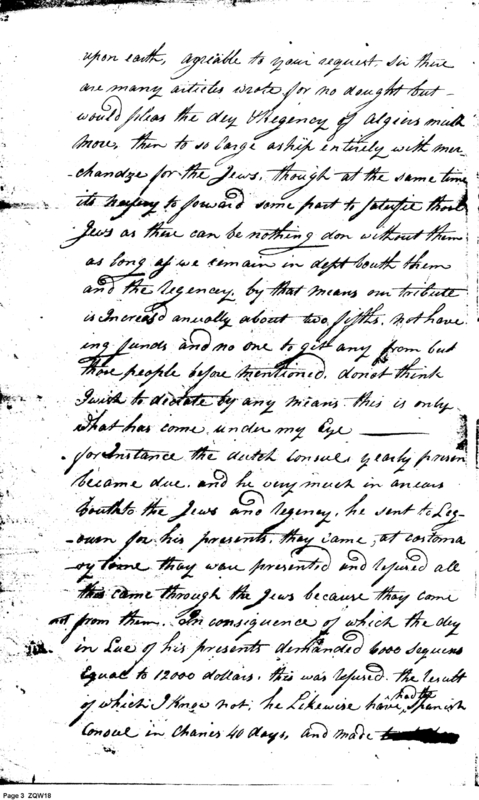 upon earth, agreable to your request. Sir there
are many articles wrote for no dought but
would pleas the dey & Regency of algiers much
more, then to so large a ship entirely with mer
-chandze for the Jews, though at the same time
its to forward some part to Satisfie those
Jews as there can be nothing don without them
as long as we remain in dept bouth them
and the regency, by that means our tribute
is Increasd anually about two fifths, not have
ing funds and no one to git any from but
those people before mentioned, donot think
I wish to dictate by any means this is only
what has come under my Eye
for Instance the dutch Consul, yearly presen
became due, and he very much in arears
bouth to the Jews and regency, he sent to Leg-
-ourn for his presents, thay came, at costoma
-ry time thay ware presented and refused all
this came through the Jews because thay come
not from them. In consequence of which the dey
in Lue of his presents demanded 6000 sequens
Equal to 12000 dollars, this was refused the result
of which I know not, he Likewise have had the Spanish
Consul in chanes 40 days, and made
Page 3 ZQW18